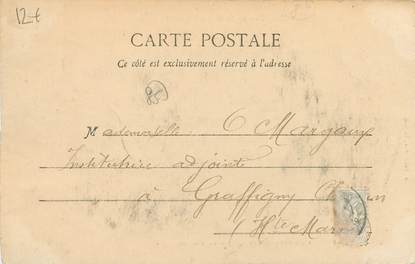 12€
CARTE POSTALE
Ce côté est exclusivement réservé à l'adresse
Mademoiselle
Institutrice adjointe
à Graffigny
(Hte Marne